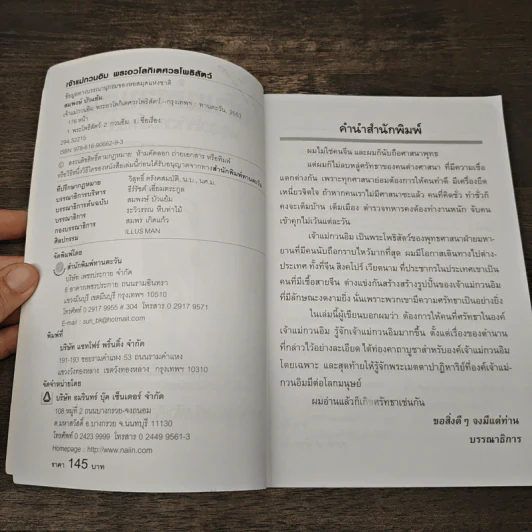 เจ้าแม่กวนอิม พระอวโลกิเตศวรโพธิสัตว์
ข้อมูลทางบรรณานุกรมของหอสมุดแห่งชาติ
สมพงษ์ บัวแย้ม.
เจ้าแม่กวนอิม พระอวโลกิเตศวรโพธิสัตว์.-กรุงเทพฯ : ทานตะวัน, 2553
176 หน้า
1. พระโพธิสัตว์. 2. กวนอิม. ๖. ชื่อเรื่อง.
294.32215
ISBN 978-616-90662-9-3
สงวนลิขสิทธิ์ตามกฎหมาย ห้ามคัดลอก ถ่ายเอกสาร หรือพิมพ์
หรือวิธีหนึ่งวิธีใดของหนังสือเล่มนี้ก่อนได้รับอนุญาตจากทางสำนักพิมพ์ทานตะวัน
ที่ปรึกษากฎหมาย วิสุทธิ์ ตรังคสมบัติ, น.บ., นศ.ม.
บรรณาธิการบริหาร ธีร์รัชต์ เอี่ยมตระกูล
บรรณาธิการต้นฉบับ สมพงษ์ บัวแย้ม
บรรณาธิการ ระวีวรรณ ทับท่าไม้
กองบรรณาธิการ สมพร เกิดแก้ว
ศิลปกรรม ILLUS MAN
จัดพิมพ์โดย
สำนักพิมพ์ทานตะวัน
บริษัท เพชรประกาย จำกัด
อาคารเพชรประกาย ถนนรามอินทรา
แขวงมีนบุรี เขตมีนบุรี กรุงเทพฯ 10510
โทรศัพท์ 0 2917 9955 # 304 โทรสาร 0 2917 9571
E-mail : sun_bk@hotmail.com
พิมพ์ที่
บริษัท แชทโฟร์ พริ้นติ้ง จำกัด
191-193 ซอยรามคำแหง 53 ถนนรามคำแหง
แขวงวังทองหลาง เขตวังทองหลาง กรุงเทพฯ 10310
จัดจำหน่ายโดย
บริษัท อมรินทร์ บุ๊ค เซ็นเตอร์ จำกัด
108 หมู่ที่ 2 ถนนบางกรวย-จงถนอม
ต.มหาสวัสดิ์ อ.บางกรวย จ.นนทบุรี 11130
โทรศัพท์ 0 2423 9999 โทรสาร 0 2449 9561-3
Homepage : http://www.naiin.com
ราคา 145 บาท
คำนำสำนักพิมพ์
ผมไม่ใช่คนจีน และผมก็นับถือศาสนาพุทธ
แต่ผมก็ไม่ลบหลู่ศรัทธาของคนต่างศาสนา ที่มีความเชื่อ
แตกต่างกัน เพราะทุกศาสนาย่อมต้องการให้คนทำดี มีเครื่องยึด
เหนี่ยวจิตใจ ถ้าหากคนเราไม่มีศาสนาซะแล้ว คนที่คิดชั่ว ทำชั่วก็
คงจะเต็มบ้าน เต็มเมือง ตำรวจทหารคงต้องทำงานหนัก จับคน
เข้าคุกไม่เว้นแต่ละวัน
เจ้าแม่กวนอิม เป็นพระโพธิสัตว์ของพุทธศาสนาฝ่ายมหา-
ยานที่มีคนนับถือกราบไหว้มากที่สุด ผมมีโอกาสเดินทางไปต่าง-
ประเทศ ทั้งที่จีน สิงคโปร์ เวียดนาม ที่ประชากรในประเทศเขาเป็น
คนที่มีเชื้อสายจีน ต่างแข่งกันสร้างสร้างรูปปั้นของเจ้าแม่กวนอิม
ที่มีลักษณะงดงามยิ่ง นั่นเพราะพวกเขามีความศรัทธาเป็นอย่างยิ่ง
ในเล่มนี้ผู้เขียนบอกผมว่า ต้องการให้คนที่ศรัทธาในองค์
เจ้าแม่กวนอิม รู้จักเจ้าแม่กวนอิมมากขึ้น ตั้งแต่เรื่องของตำนาน
ที่กล่าวไว้อย่างละเอียด ได้ท่องคาถาบูชาสำหรับองค์เจ้าแม่กวนอิม
โดยเฉพาะ และสุดท้ายให้รู้จักพระเมตตาปาฏิหาริย์ที่องค์เจ้าแม่-
กวนอิมมีต่อโลกมนุษย์
ผมอ่านแล้วก็เกิดศรัทธาเช่นกัน
ขอสิ่งดีๆ จงมีแด่ท่าน
บรรณาธิการ